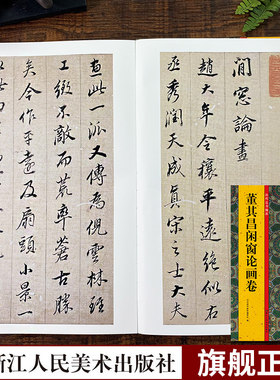 閒窓論畫
趙大年令穰平遠絕似右
丞秀潤天成真宋之士大夫
畫此一派又傳為倪雲林雖
工緻不敵而荒率蒼古勝
矣今作平遠及扇頭小景一
董其昌闲窗论画卷
浙江人民美术出版社
旗舰正品